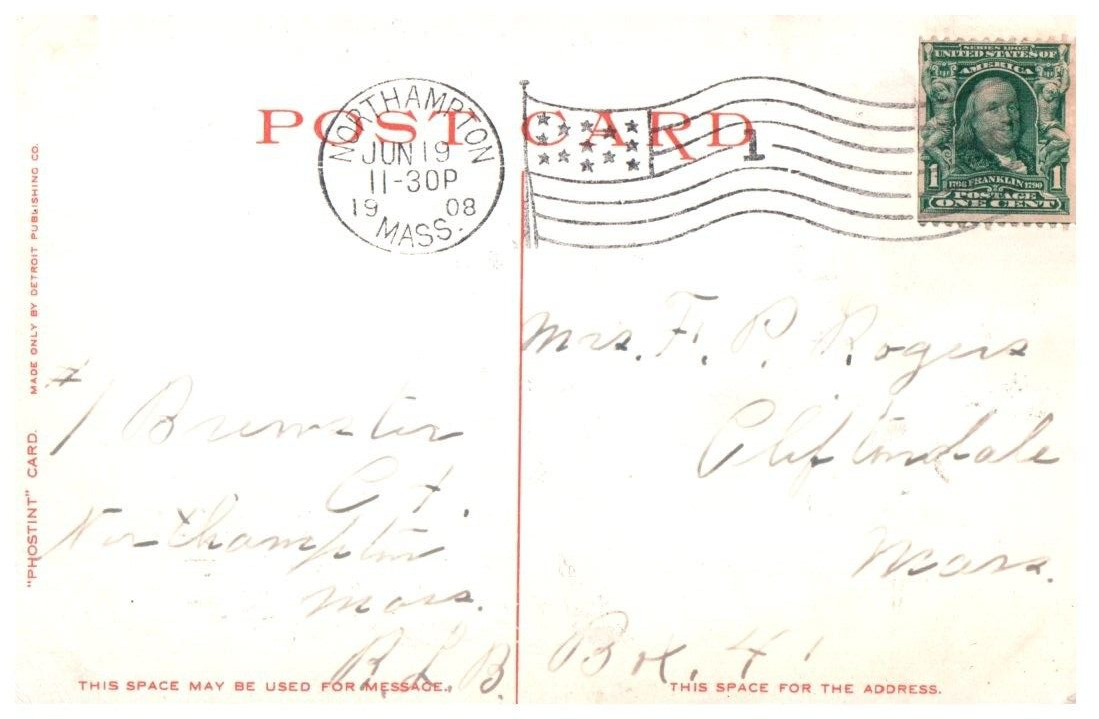 POST CARD
NORTHAMPTON
JUN 19
11-30P
19 08
MASS.
1
SERIES 1902
UNITED STATES OF
AMERICA
1 1706 FRANKLIN 1790 1
POSTAGE
ONE CENT
"PHOSTINT" CARD. MADE ONLY BY DETROIT PUBLISHING CO.
#1 Brewster
Ct.
Northampton
Mass.
R. L. B.
THIS SPACE MAY BE USED FOR MESSAGE.
Mrs. F. P. Rogers
Cliftondale
Mass.
Box. 41
THIS SPACE FOR THE ADDRESS.